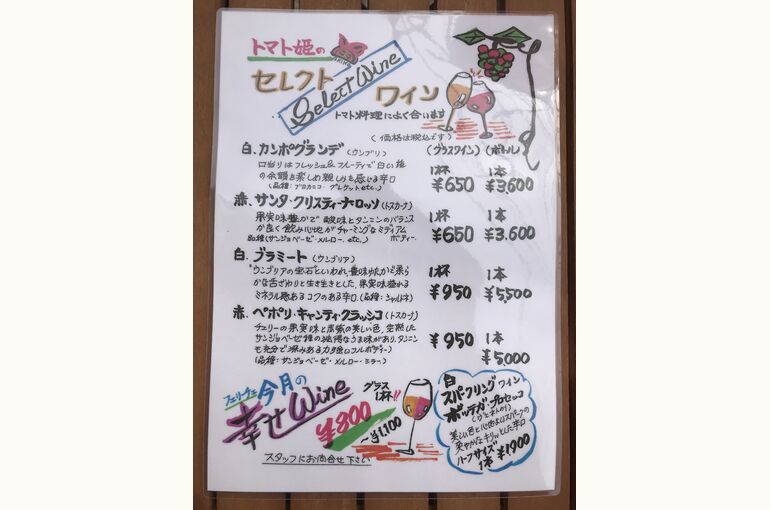 トマト姫の
セレクト
Select Wine
ワイン
トマト料理によく合います
(価格は税込です)
(グラスワイン) (ボトル)
白、カンポグランデ(ウンブリ)
口当りはフレッシュ&フルーティで白い
の余韻を楽しめ親しみを感じる辛口
(品種:プロカニコ・グレケット etc.)
1杯 ¥650
1本 ¥3,600
赤、サンタ・クリスティーナ・ロッソ(トスカーナ)
果実味豊かで酸味とタンニンのバランス
が良く飲み心地がチャーミングなミディアム
品種(サンジョベーゼ・メルロー、etc.) ボディー.
1杯 ¥650
1本 ¥3,600
白、ブラミート(ウンブリア)
"ウンブリアの宝石といわれ、豊味ゆたかで柔ら
かな舌ざわりと生き生きとした、果実味溢れる
ミネラル感あるコクのある辛口。(品種:シャルドネ)
1杯 ¥950
1本 ¥5,500
赤、ペポリ・キャンティ・クラッシコ(トスカーナ)
チェリーの果実味と
の美しい色、
した
サンジョベーゼ種の独得なうま味があり、タンニン
も充分で深みある力強いフルボディー
(品種:サンジョベーゼ・メルロー・シラー)
¥950
1本 ¥5,000
フェリーチェ 今月の
幸せWine
グラス
1杯!!
¥800
〜¥1,100
スタッフにお問合せ下さい
白
スパークリングワイン
ボッテガ・プロセッコ
美しい色と心地よいスパークの
爽やかなキリッとした辛口
ハーフサイズ
1本 ¥1,900